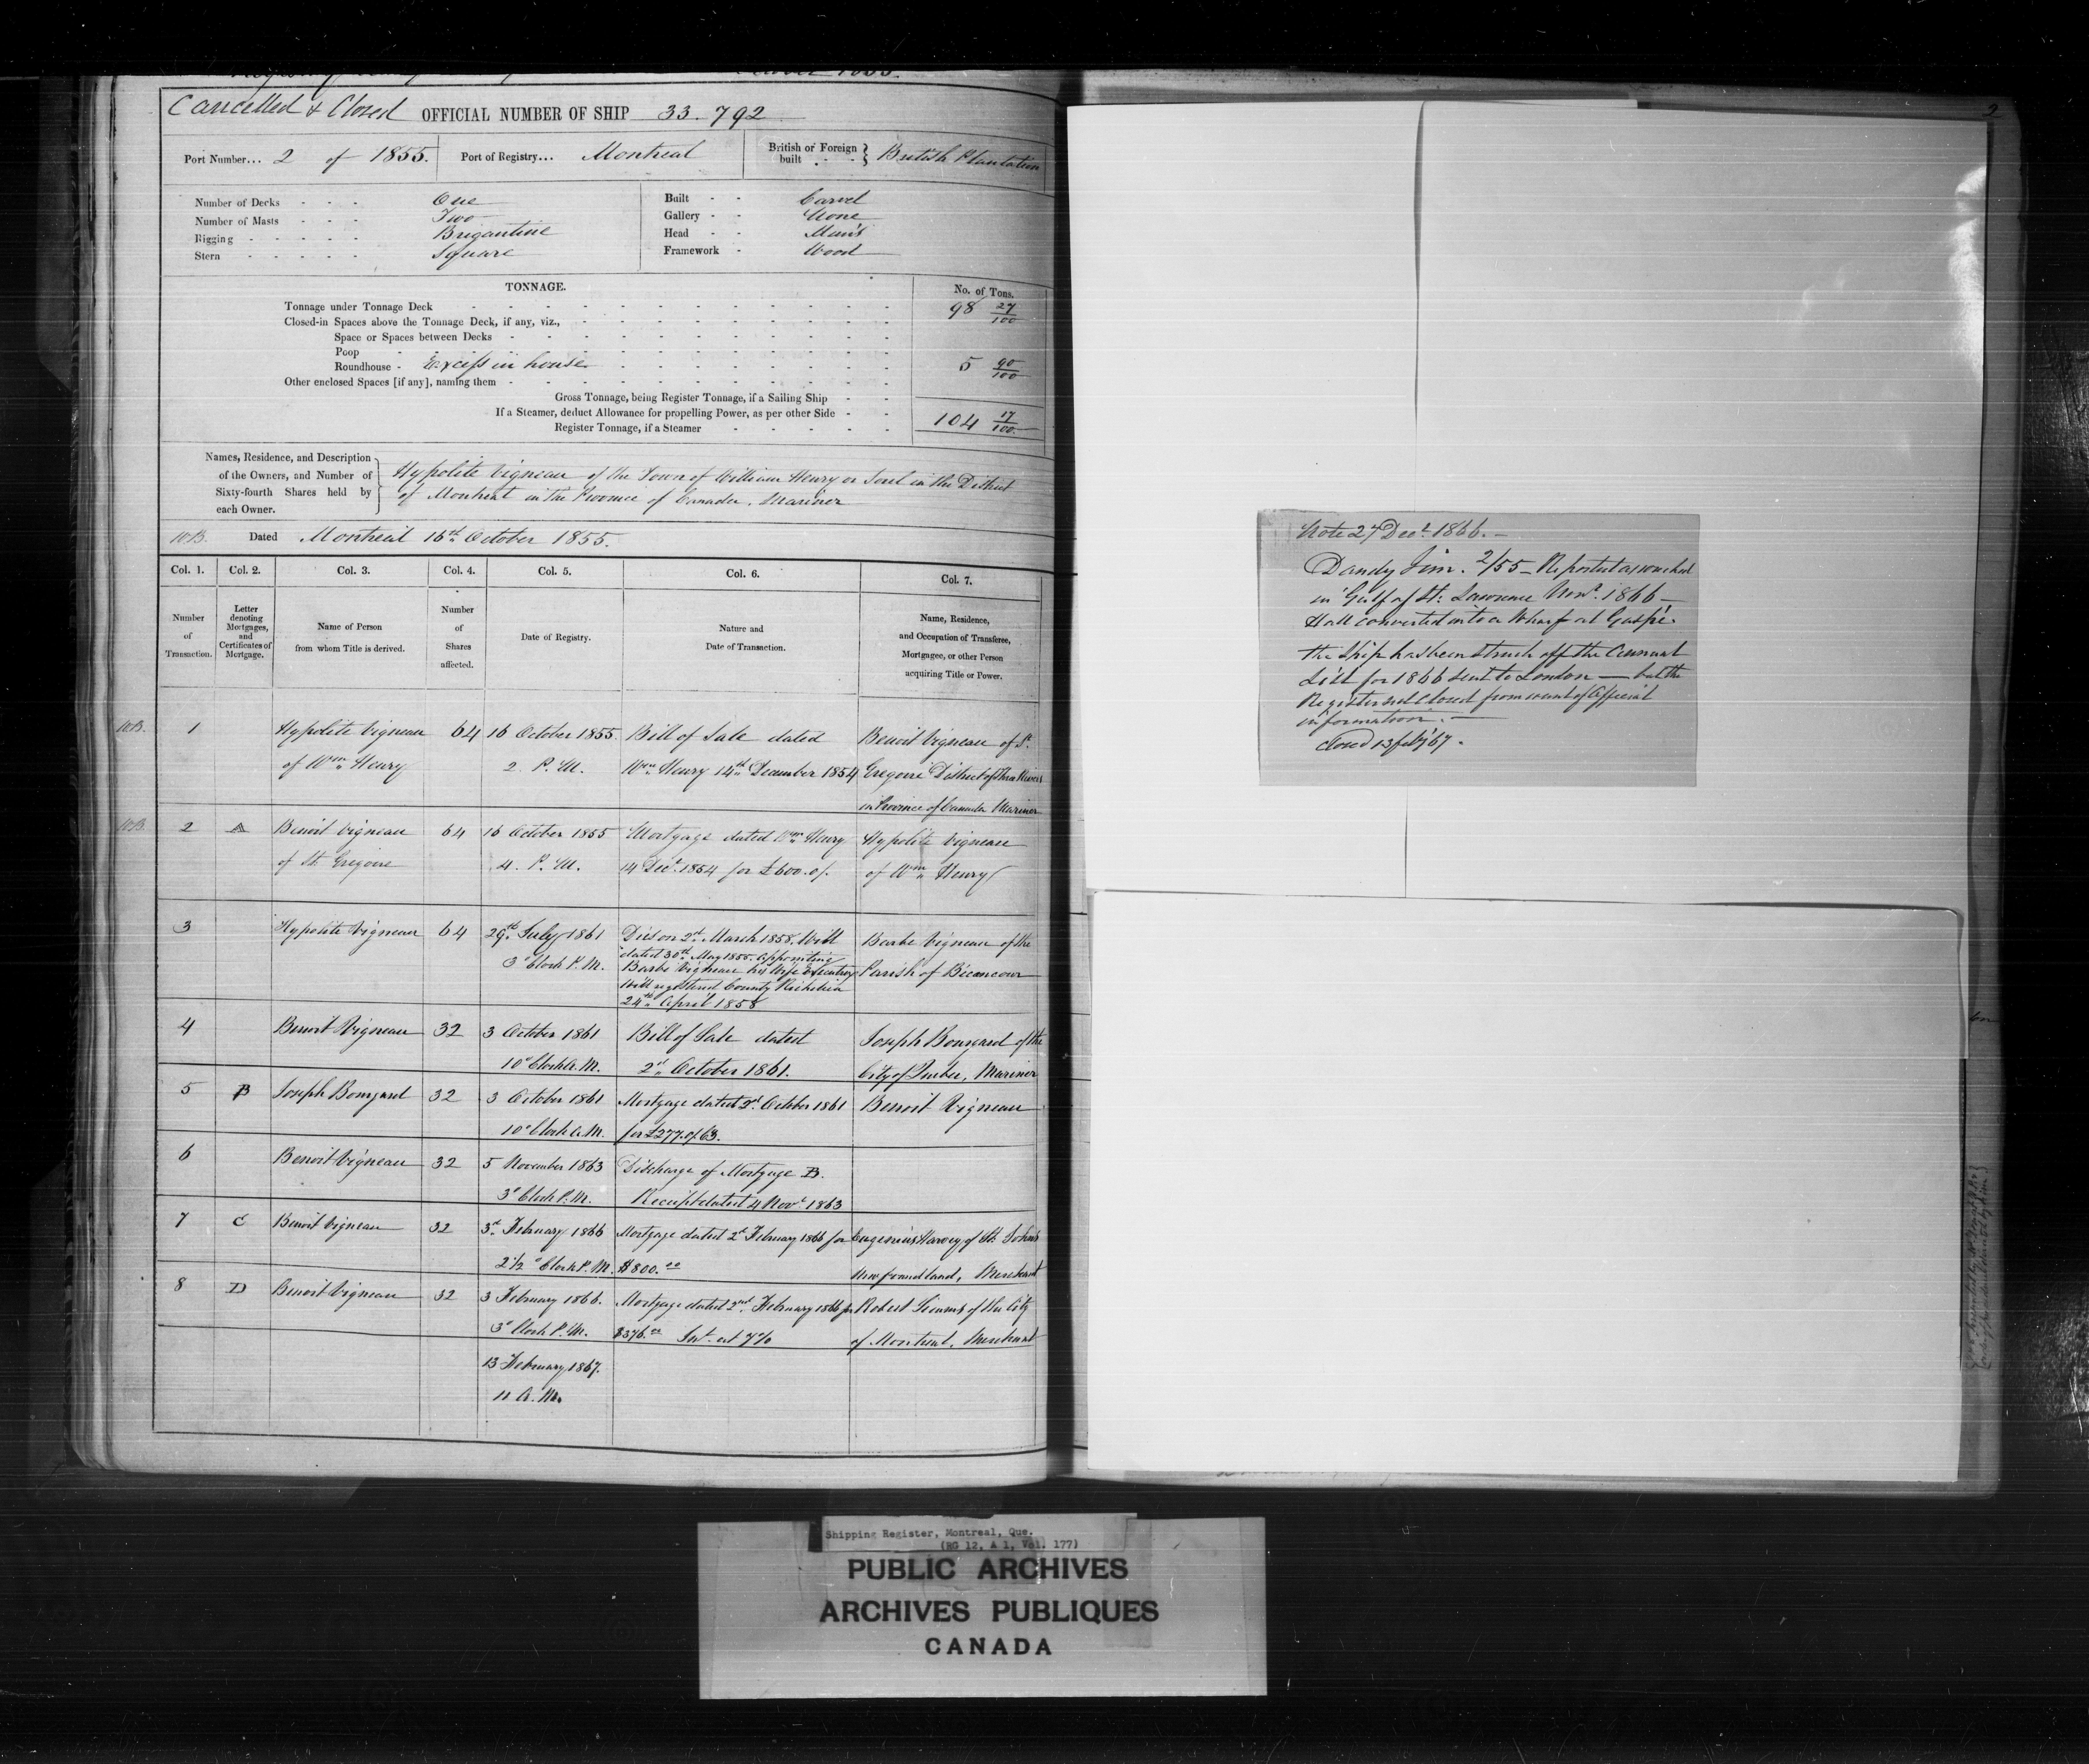 Cancelled & Closed OFFICIAL NUMBER OF SHIP 33.792
Port Number... 2 of 1855. Port of Registry... Montreal British or Foreign built British Plantation
Number of Decks One
Number of Masts Two
Rigging Brigantine
Stern Square
Built Carvel
Gallery None
Head Man's
Framework Wood
TONNAGE. No. of Tons.
Tonnage under Tonnage Deck 98 27/100
Closed-in Spaces above the Tonnage Deck, if any, viz.,
Space or Spaces between Decks
Poop
Roundhouse - Excess in house 5 90/100
Other enclosed Spaces [if any], naming them
Gross Tonnage, being Register Tonnage, if a Sailing Ship
If a Steamer, deduct Allowance for propelling Power, as per other Side
Register Tonnage, if a Steamer 104 17/100
Names, Residence, and Description
of the Owners, and Number of
Sixty-fourth Shares held by
each Owner.
Hypolite Vigneau of the Town of William Henry or Sorel in the District
of Montreal in the Province of Canada. Mariner
WB. Dated Montreal 16th October 1855.
Col. 1. Col. 2. Col. 3. Col. 4. Col. 5. Col. 6. Col. 7.
Number of Transaction.
Letter denoting Mortgages, and Certificates of Mortgage.
Name of Person from whom Title is derived.
Number of Shares affected.
Date of Registry.
Nature and Date of Transaction.
Name, Residence, and Occupation of Transferee, Mortgagee, or other Person acquiring Title or Power.
WB. 1 Hypolite Vigneau 64 16 October 1855. Bill of Sale dated Benoit Vigneau of St.
of Wm Henry 2. P.M. Wm Henry 14th December 1854 Gregoire District of Three Rivers
in Province of Canada Mariner
WB. 2 A Benoit Vigneau 64 16 October 1855 Mortgage dated Wm Henry Hypolite Vigneau
of St. Gregoire 4. P.M. 14 Decr. 1854 for £600.0/. of Wm Henry
3 Hypolite Vigneau 64 29th July 1861 Died on 2d March 1858. Will Barbe Vigneau of the
dated 30th May 1855. appointing
3 o'Clock P.M. Barbe Vigneau his Wife Executrix Parish of Bécancour
Will registered County Richelieu
24th April 1858
4 Benoit Vigneau 32 3 October 1861 Bill of Sale dated Joseph Bourgard of the
10 o'Clock A.M. 2d October 1861. City of Quebec, Mariner
5 B Joseph Bourgard 32 3 October 1861 Mortgage dated 2d October 1861 Benoit Vigneau
10 o'Clock A.M. for £277.0/.63.
6 Benoit Vigneau 32 5 November 1863 Discharge of Mortgage B.
3 o'Clock P.M. Receipt dated 4 Novr. 1863
7 C Benoit Vigneau 32 3d February 1866 Mortgage dated 2d February 1866 for Eugenius Harvey of St. Johns
2 1/2 o'Clock P.M. $800.00 Newfoundland, Merchant
8 D Benoit Vigneau 32 3 February 1866. Mortgage dated 2nd February 1866 for Robert Simms of the City
3 o'Clock P.M. $376.00 Int. at 7% of Montreal, Merchant
13 February 1867.
11 A.M.
2
Note 27 Decr. 1866. —
Dandy Jim. 2/55 — Reported as wrecked
in Gulf of St. Lawrence Novr. 1866 —
Hull converted into a Wharf at Gaspé.
The Ship has been struck off the Annual
List for 1866 sent to London — but the
Register not closed from want of Official
information. —
Closed 13 feby 67.
Shipping Register, Montreal, Que.
(RG 12, A 1, Vol. 177)
PUBLIC ARCHIVES
ARCHIVES PUBLIQUES
CANADA